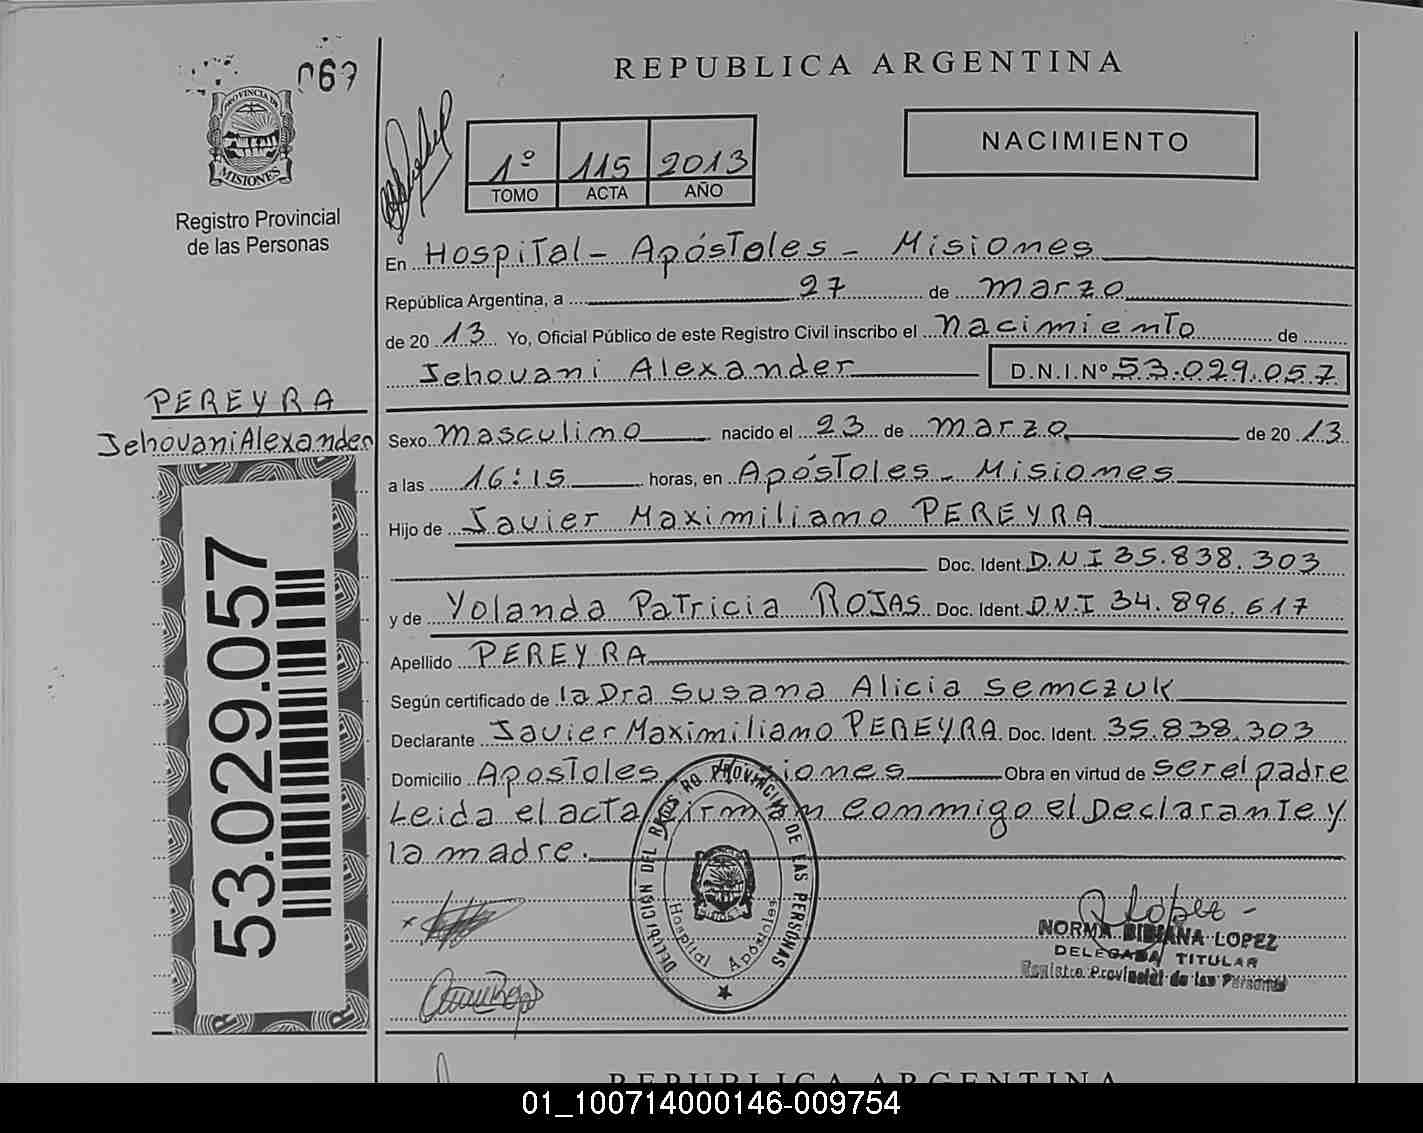 067
PROVINCIA DE
MISIONES
Registro Provincial
de las Personas
REPUBLICA ARGENTINA
1º 115 2013
TOMO ACTA AÑO
NACIMIENTO
En Hospital - Apóstoles - Misiones
República Argentina, a 27 de marzo
de 20 13 Yo, Oficial Público de este Registro Civil inscribo el nacimiento de
Jehovani Alexander D.N.I.Nº 53.029.057
PEREYRA
Jehovani Alexander
53.029.057
Sexo masculino nacido el 23 de marzo de 20 13
a las 16:15 horas, en Apóstoles - Misiones
Hijo de Javier Maximiliano PEREYRA
Doc. Ident. D.N.I 35.838.303
y de Yolanda Patricia ROJAS Doc. Ident. D.N.I 34.896.617
Apellido PEREYRA
Según certificado de la Dra Susana Alicia Semczuk
Declarante Javier Maximiliano PEREYRA Doc. Ident. 35.838.303
Domicilio Apostoles Misiones Obra en virtud de ser el padre
Leida el acta firman conmigo el Declarante y
la madre.
DE LAS PERSONAS
Hospital Apóstoles
NORMA BIBIANA LOPEZ
DELEGADA TITULAR
Registro Provincial de las Personas
REPUBLICA ARGENTINA
01_100714000146-009754